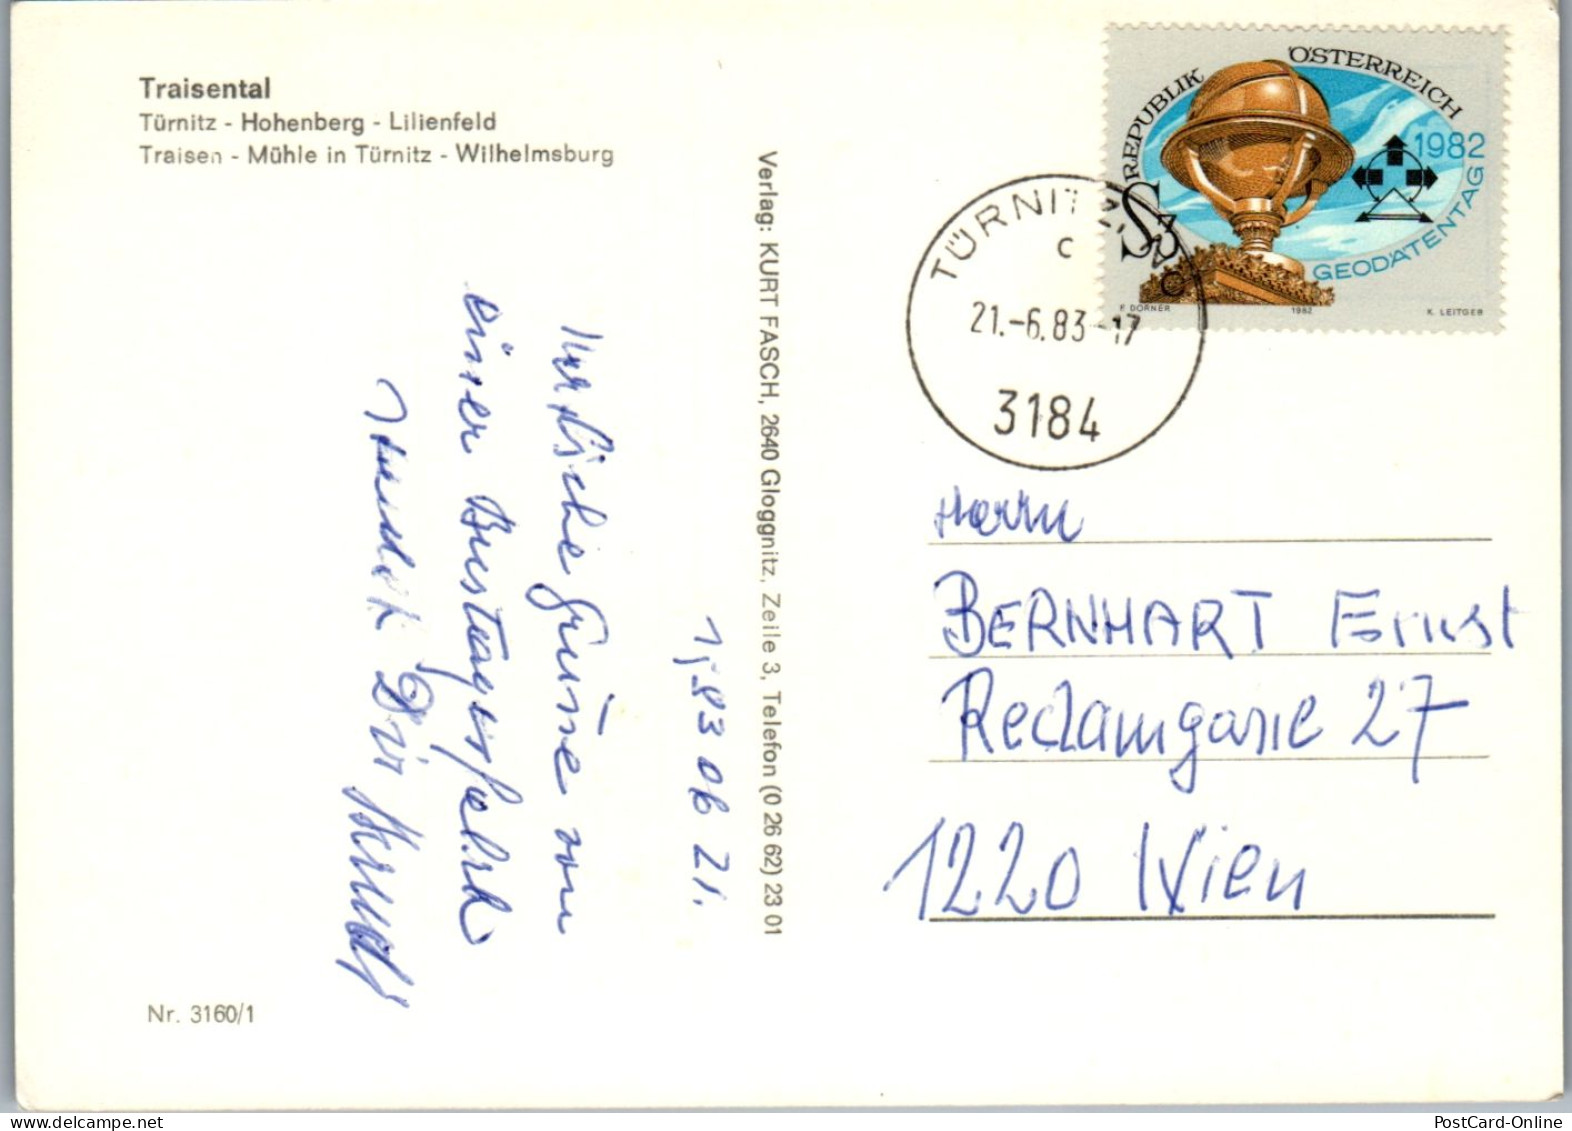 Traisental
Türnitz - Hohenberg - Lilienfeld
Traisen - Mühle in Türnitz - Wilhelmsburg
REPUBLIK ÖSTERREICH
1982
GEODÄTENTAG
S3
F. DORNER 1982 K. LEITGEB
TÜRNITZ, NÖ
c
21.-6.83-17
3184
Verlag: KURT FASCH, 2640 Gloggnitz, Zeile 3, Telefon (0 26 62) 23 01
Herzliche Grüsse von
einer
Herrn
BERNHART Ernst
Reclamgasse 27
1220 Wien
Nr. 3160/1
PostCard-Online